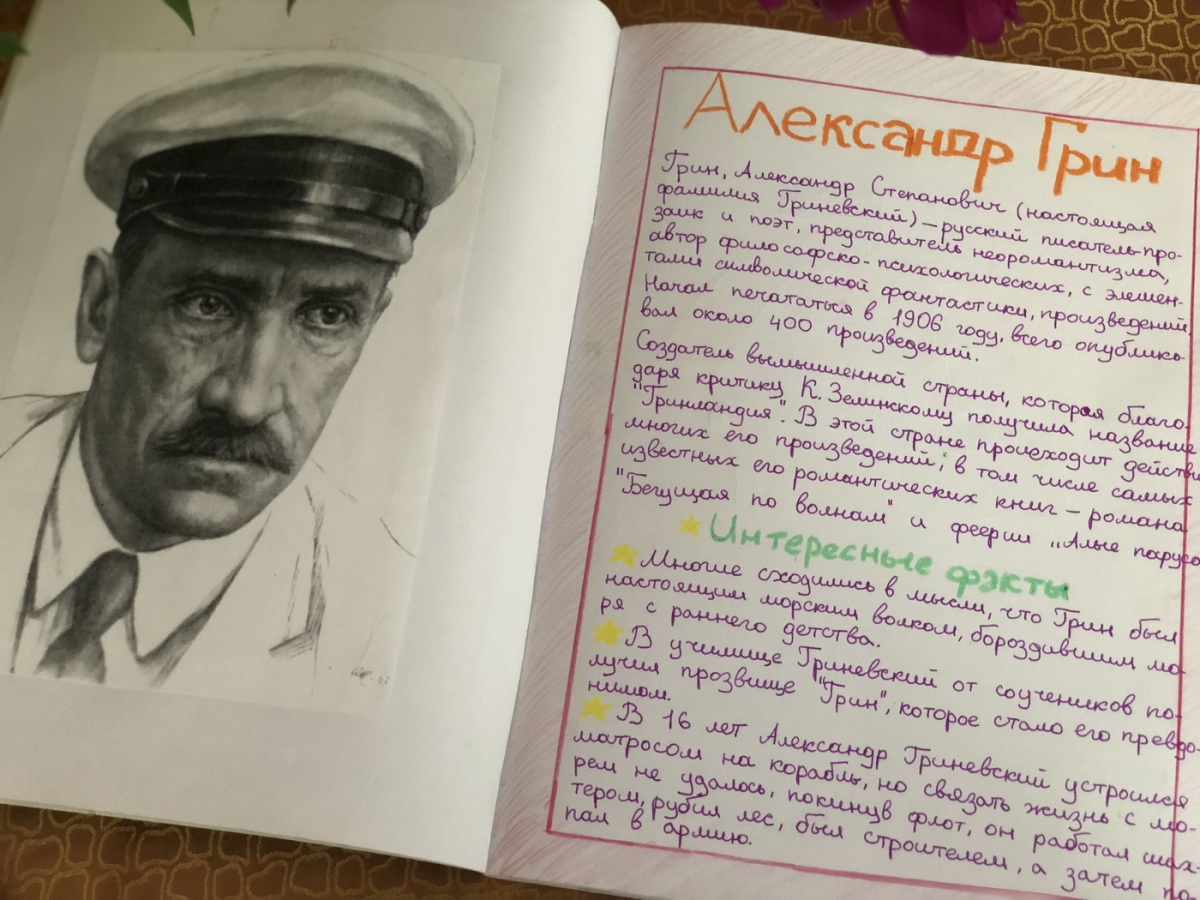 Александр Грин
Грин, Александр Степанович (настоящая
фамилия Гриневский) – русский писатель-про-
заик и поэт, представитель неоромантизма,
автор философско-психологических, с элемен-
тами символической фантастики, произведений.
Начал печататься в 1906 году, всего опублико-
вал около 400 произведений.
Создатель вымышленной страны, которая благо-
даря критику К. Зелинскому получила название
"Гринландия". В этой стране происходит действи
многих его произведений, в том числе самых
известных его романтических книг – романа
"Бегущая по волнам" и феерии „Алые парусо
Интересные факты
Многие сходились в мысли, что Грин был
настоящим морским волком, бороздившим мо-
ря с раннего детства.
В училище Гриневский от соучеников по-
лучил прозвище "Грин", которое стало его превдо-
нимом.
В 16 лет Александр Гриневский устроился
матросом на корабль, но связать жизнь с мо-
рем не удалось, покинув флот, он работал шах-
тером, рубил лес, был строителем, а затем по-
пал в армию.